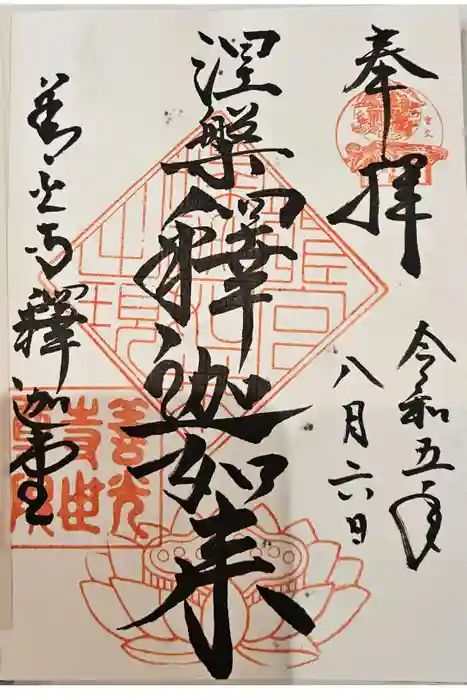 奉拝
令和五年
八月六日
涅槃釋迦如来
善光寺釋迦堂
重文
善光
寺世